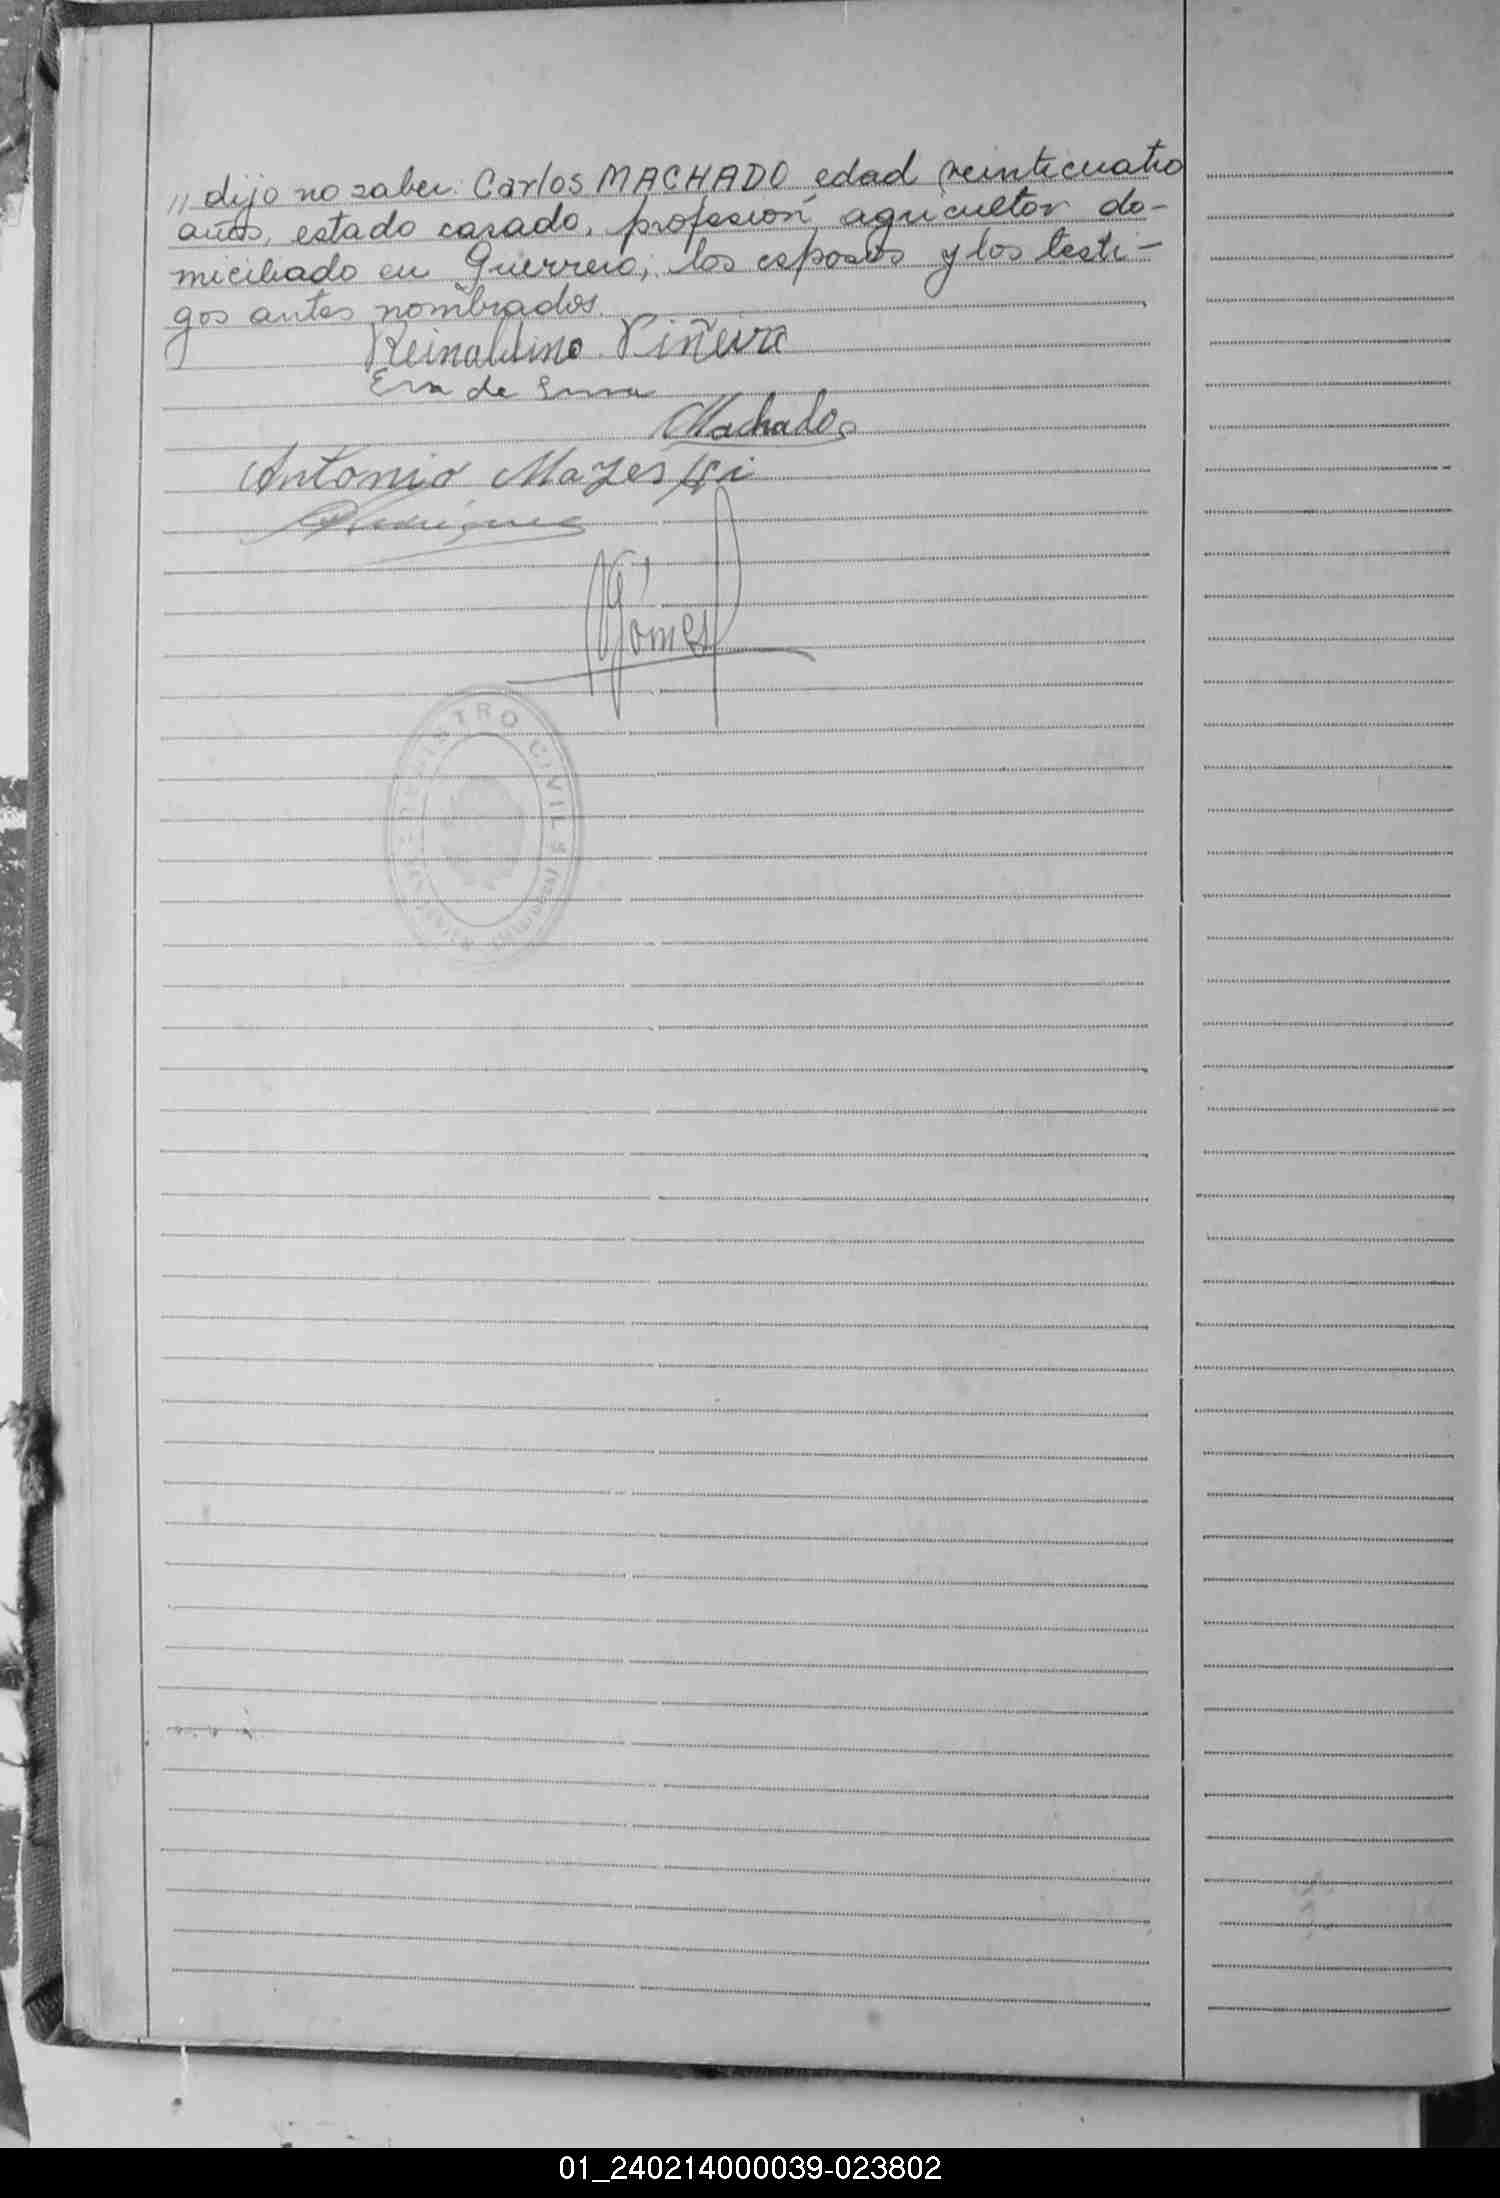 ,, dijo no saber: Carlos MACHADO, edad veinticuatro
años, estado casado, profesión agricultor do-
miciliado en Guerrero; los esposos y los testi-
gos antes nombrados.
Reinaldino Piñeira
de
Machado
Antonio
Rodriguez
Gómes
REGISTRO CIVIL
01_240214000039-023802